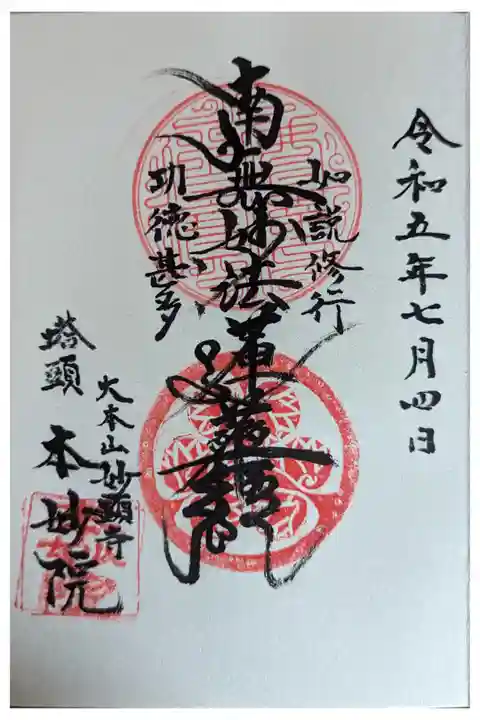 令和五年七月四日
如説修行
南無妙法蓮華経
功徳甚多
大本山妙顕寺
塔頭 本妙院